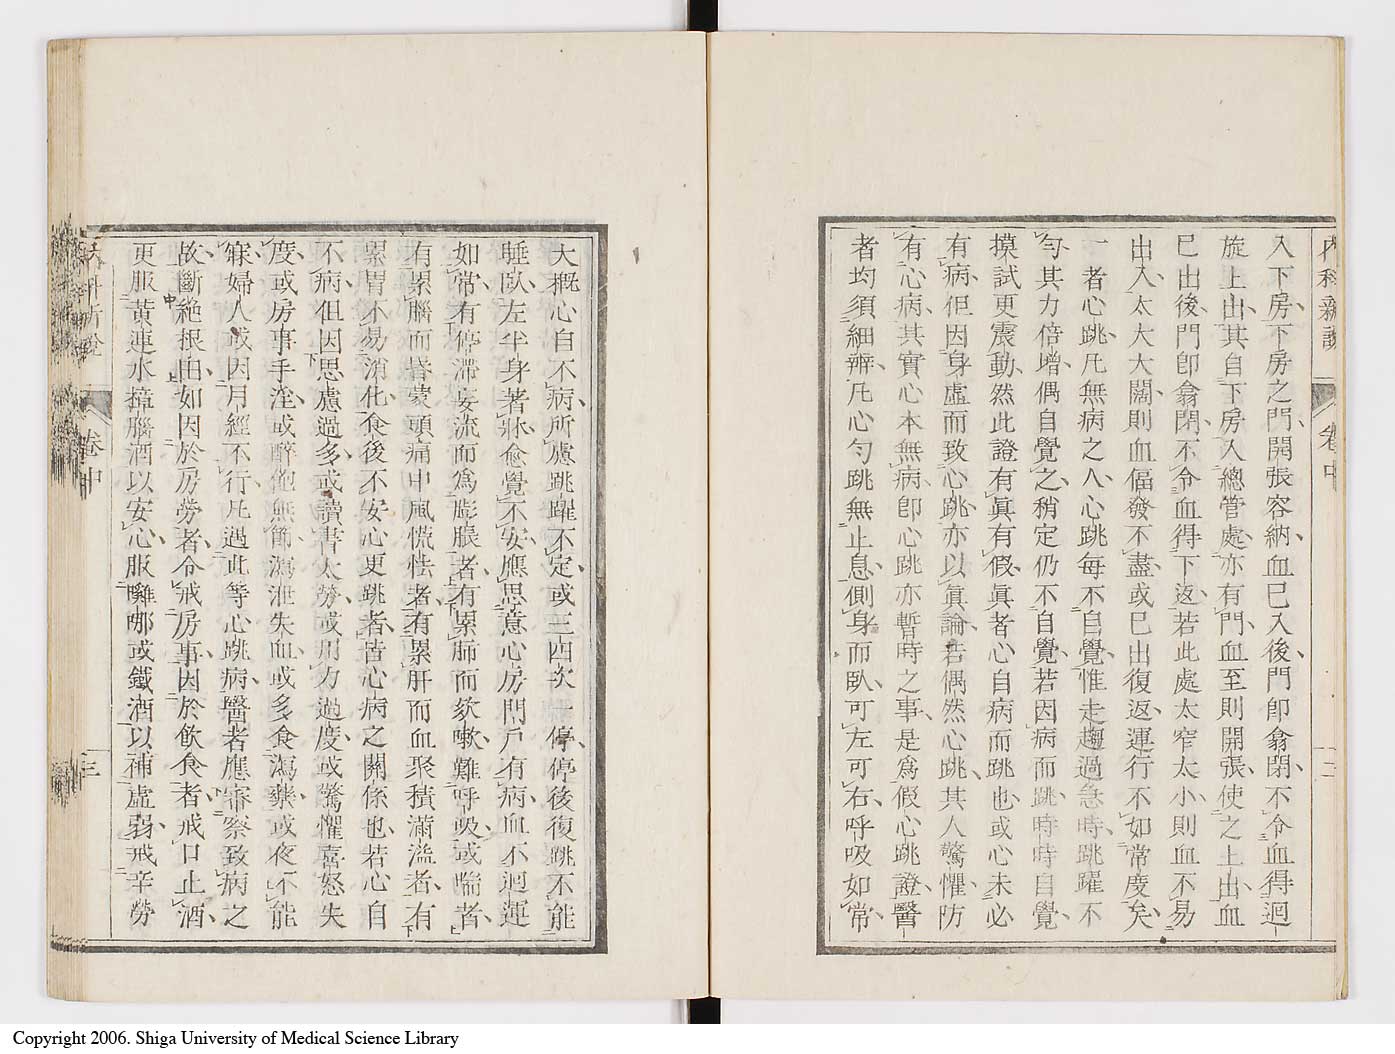 內科新說
卷中
二
入下房下房之門開張容納血已入後門卽翕閉不令血得迴
旋上出其自下房入總管處亦有門血至則開張使之上出血
已出後門卽翕閉不令血得下返若此處太窄太小則血不易
出入太大大闊則血偪發不盡或已出復返運行不如常度矣
一者心跳凡無病之人心跳每不自覺惟走趨過急時跳躍不
勻其力倍增偶自覺之稍定仍不自覺若因病而跳時時自覺
摸試更震動然此證有眞有假眞者心自病而跳也或心未必
有病但因身虛而致心跳亦以眞論若偶然心跳其人驚懼防
有心病其實心本無病卽心跳亦暫時之事是爲假心跳證醫
者均須細辨凡心勻跳無止息側身而臥可左可右呼吸如常
大槪心自不病所慮跳躍不定或三四次一停停後復跳不能
睡臥左半身著牀愈覺不安應思意心房門戶有病血不迴運
如常有停滯妄流而爲膨脹者有累肺而欬嗽難呼吸或喘者
有累腦而昏蒙頭痛中風慌怯者有累肝而血聚積滿溢者有
累胃不易消化食後不安心更跳者皆心病之關係也若心自
不病但因思慮過多或讀書太勞或用力過度或驚懼喜怒失
度或房事手淫或醉飽無節瀉泄失血或多食瀉藥或夜不能
寐婦人或因月經不行凡遇此等心跳病醫者應審察致病之
故斷絶根由如因於房勞者令戒房事因於飲食者戒口止酒
更服黃連水樟腦酒以安心服囄哪或鐵酒以補虛弱戒辛勞
內科新說
卷中
三
Copyright 2006. Shiga University of Medical Science Library